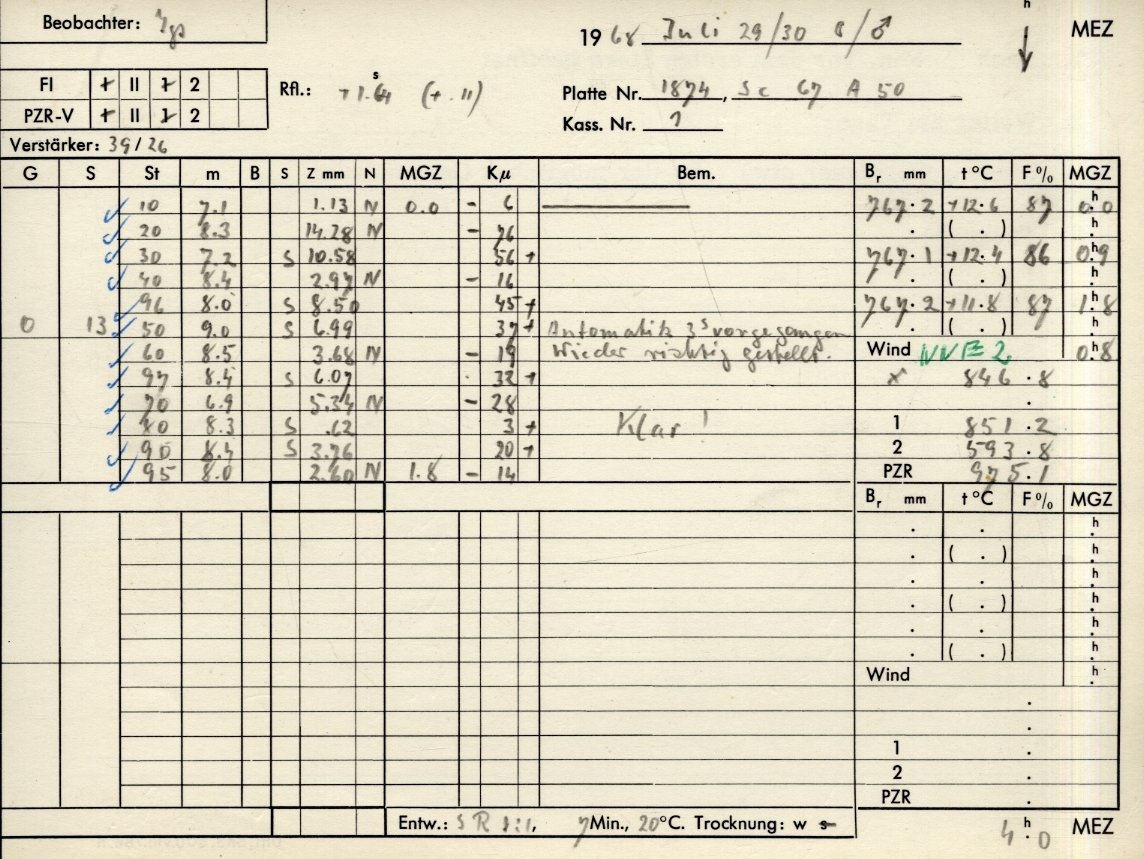 Beobachter:
1968 Juli 29/30 ☿/♂ h MEZ
FI I II 1 2
Rfl.: +1.64 s (+.11)
Platte Nr. 1874, Sc 67 A 50
PZR-V I II 1 2
Kass. Nr. 1
Verstärker: 39/26
G S St m B S Z mm N MGZ Kμ Bem. Br mm t °C F % MGZ
10 7.1 1.13 N 0.0 - 6 767.2 +12.6 87 0.0 h
20 8.3 14.28 N - 76 . ( . ) h .
30 7.2 S 10.58 56 + 767.1 +12.4 86 0.9 h
40 8.4 2.97 N - 16 . ( . ) h .
96 8.0 S 8.50 45 + 767.2 +11.8 87 1.8 h
0 13 50 9.0 S 6.99 37 + Automatik 3s vorgegangen . ( . ) h .
60 8.5 3.68 N - 19 Wieder richtig gestellt. Wind NNE 2 0.8 h
97 8.4 S 6.07 32 + x 846.8
70 6.9 5.34 N - 28 .
80 8.3 S .62 3 + Klar! 1 851.2
90 8.4 S 3.76 20 + 2 593.8
95 8.0 2.60 N 1.8 - 14 PZR 975.1
Br mm t °C F % MGZ
. . h .
. ( . ) h .
. . h .
. ( . ) h .
. . h .
. ( . ) h .
Wind h .
.
.
1 .
2 .
PZR .
Entw.: S R 1:1, 7 Min., 20°C. Trocknung: w s
4.0 h MEZ